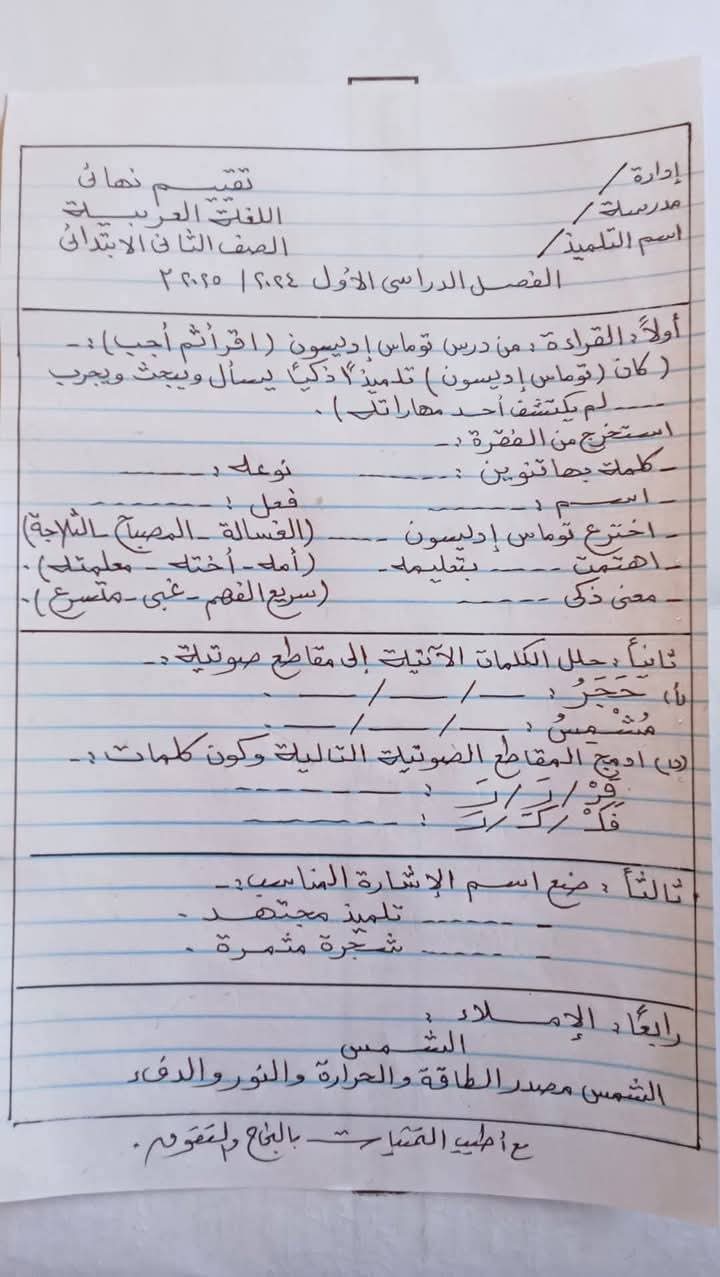 إدارة / تقييم نهائى
مدرسة / اللغة العربية
اسم التلميذ / الصف الثانى الابتدائى
الفصل الدراسى الأول ٢٠٢٤ / ٢٠٢٥ م
أولاً: القراءة: من درس توماس إديسون (اقرأ ثم أجب) :-
(كان (توماس إديسون) تلميذًا ذكيًا يسأل ويبحث ويجرب
---- لم يكتشف أحد مهاراته).
استخرج من الفقرة :-
- كلمة بها تنوين : ------ نوعه : ------
- اسم : ------ فعل : ------
- اخترع توماس إديسون ---- (الغسالة - المصباح - الثلاجة)
- اهتمت ------ بتعليمه. (أمه - أخته - معلمته).
- معنى ذكى ------ (سريع الفهم - غبى - متسرع).
ثانياً: حلل الكلمات الآتية إلى مقاطع صوتية :-
(أ) حَجَرُ : — / — / — .
مُشْمِسُ : — / — / — .
(ب) ادمج المقاطع الصوتية التالية وكون كلمات :-
قَرْ / رَ / رَ : -------
فَكْ / كَ / رَ : -------
ثالثاً : ضع اسم الإشارة المناسب :-
- ------ تلميذ مجتهد .
- ------ شجرة مثمرة .
رابعًا : الإملاء :
الشمس
الشمس مصدر الطاقة والحرارة والنور والدفء
مع أطيب التمنيات بالنجاح والتفوق .